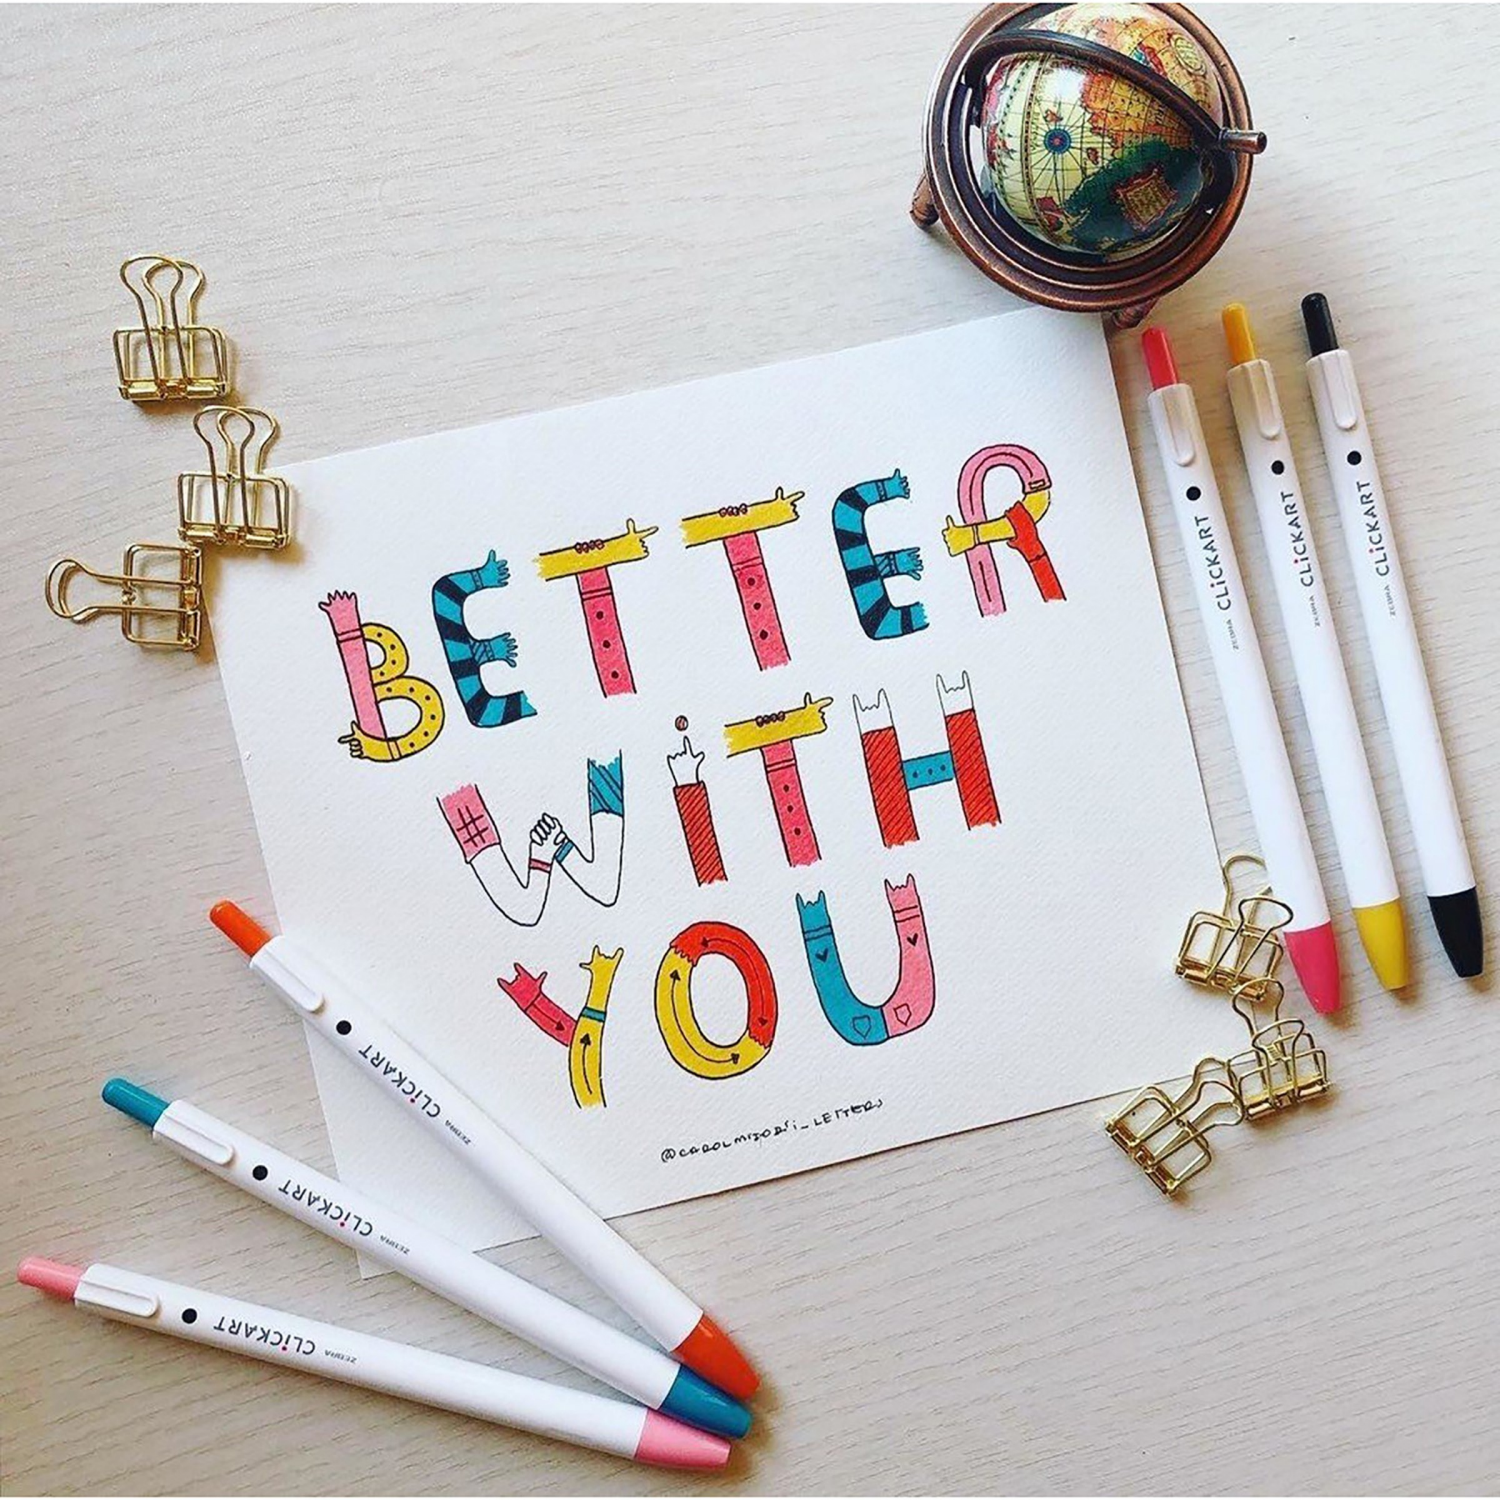 BETTER
WiTH
YOU
@CAROLMIZOBi_LETTERS
CLiCKART ZEBRA
CLiCKART ZEBRA
CLiCKART ZEBRA
CLiCKART ZEBRA
CLiCKART ZEBRA
CLiCKART ZEBRA